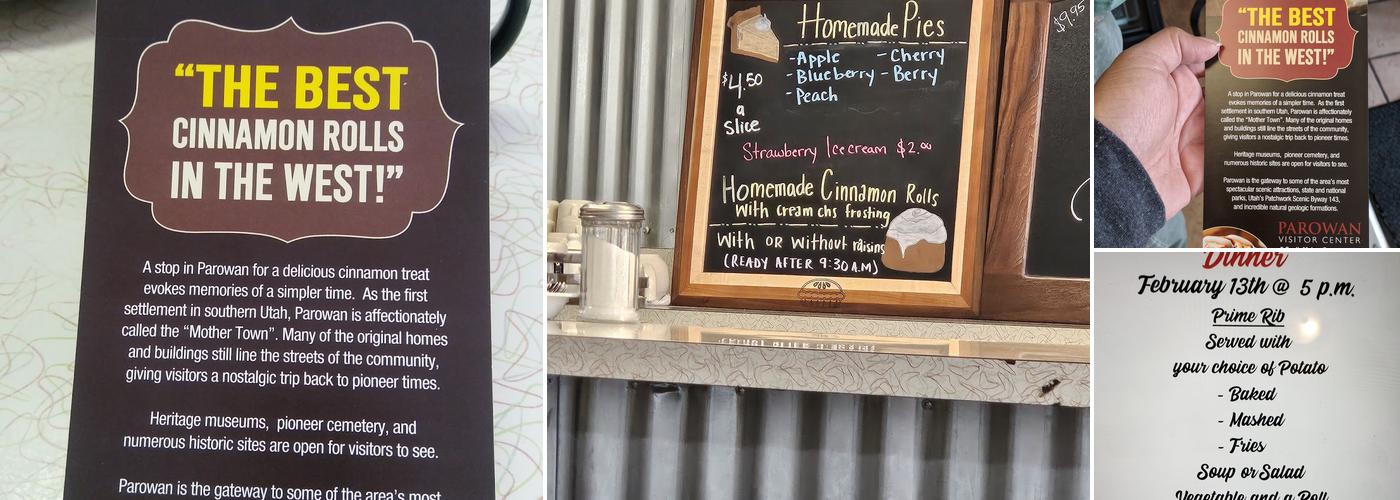 “THE BEST
CINNAMON ROLLS
IN THE WEST!”
A stop in Parowan for a delicious cinnamon treat
evokes memories of a simpler time. As the first
settlement in southern Utah, Parowan is affectionately
called the “Mother Town”. Many of the original homes
and buildings still line the streets of the community,
giving visitors a nostalgic trip back to pioneer times.
Heritage museums, pioneer cemetery, and
numerous historic sites are open for visitors to see.
Parowan is the gateway to some of the area's most
Homemade Pies
-Apple - Cherry
-Blueberry - Berry
-Peach
$4.50
a
slice
Strawberry Ice cream $2.00
Homemade Cinnamon Rolls
With cream chs frosting
With OR Without raisins
(READY AFTER 9:30 A.M)
$9.95
“THE BEST
CINNAMON ROLLS
IN THE WEST!”
A stop in Parowan for a delicious cinnamon treat
evokes memories of a simpler time. As the first
settlement in southern Utah, Parowan is affectionately
called the “Mother Town”. Many of the original homes
and buildings still line the streets of the community,
giving visitors a nostalgic trip back to pioneer times.
Heritage museums, pioneer cemetery, and
numerous historic sites are open for visitors to see.
Parowan is the gateway to some of the area's most
spectacular scenic attractions, state and national
parks, Utah's Patchwork Scenic Byway 143,
and incredible natural geologic formations.
PAROWAN
VISITOR CENTER
Dinner
February 13th @ 5 p.m.
Prime Rib
Served with
your choice of Potato
- Baked
- Mashed
- Fries
Soup or Salad
Vegetable and a Roll